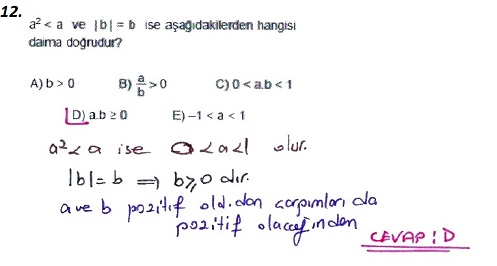 12.
a² < a ve |b| = b ise aşağıdakilerden hangisi
daima doğrudur?
A) b > 0 B) a/b > 0 C) 0 < a.b < 1
D) a.b ≥ 0 E) -1 < a < 1
a² < a ise 0 < a < 1 olur.
|b| = b ⟹ b ≥ 0 dır.
a ve b pozitif old.dan çarpımları da
pozitif olacağından
CEVAP : D